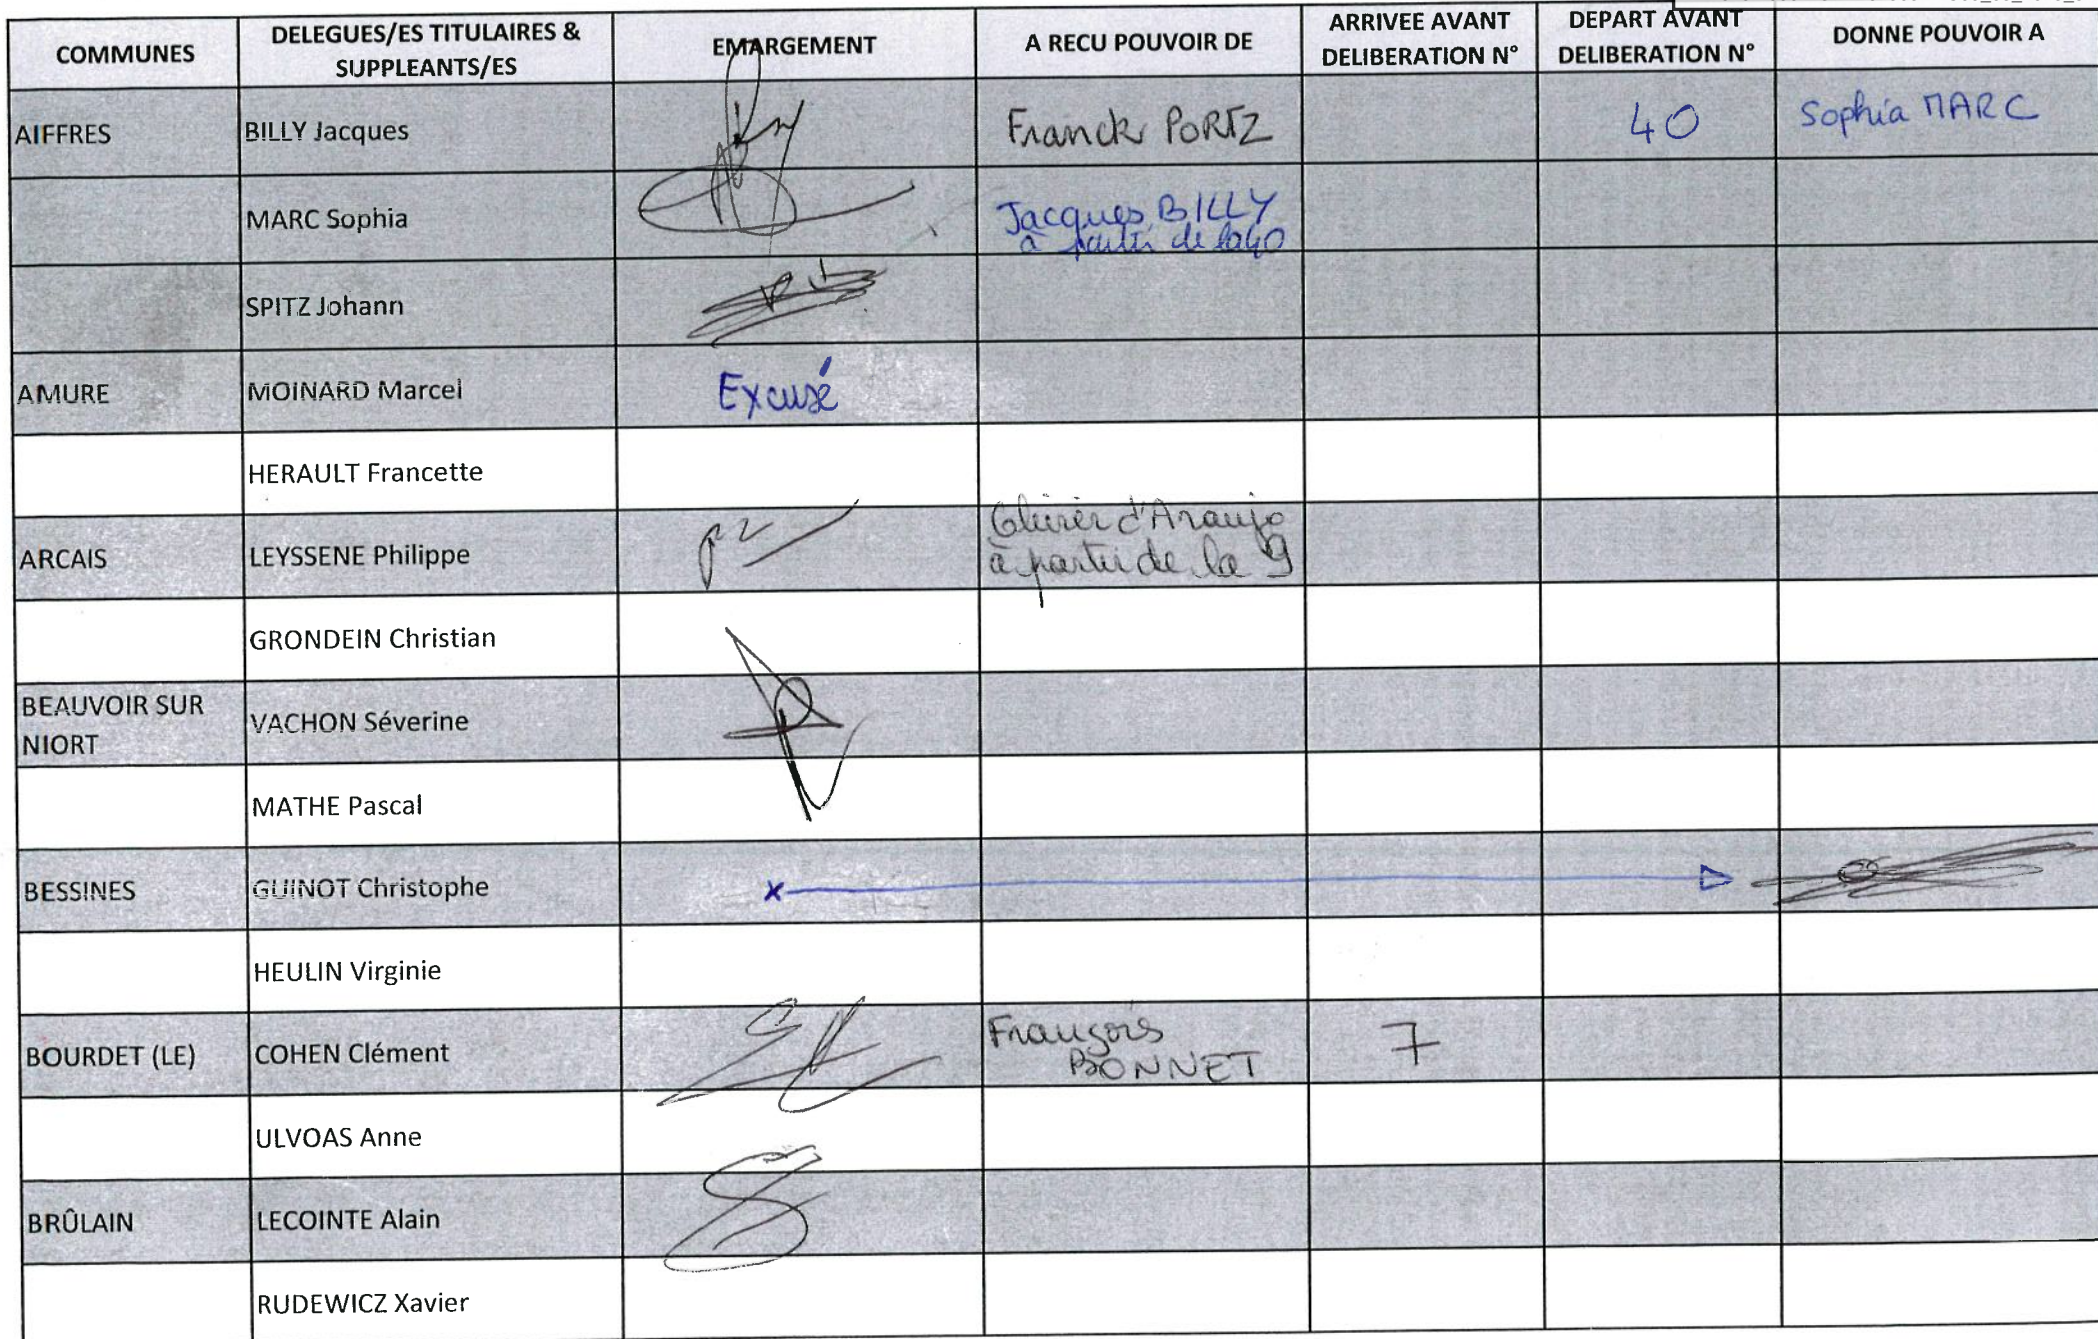 COMMUNES
DELEGUES/ES TITULAIRES &
SUPPLEANTS/ES
EMARGEMENT
A RECU POUVOIR DE
ARRIVEE AVANT
DELIBERATION N°
DEPART AVANT
DELIBERATION N°
DONNE POUVOIR A
AIFFRES
BILLY Jacques
Franck PORTZ
40
Sophia MARC
MARC Sophia
Jacques BILLY
à partir de la 40
SPITZ Johann
AMURE
MOINARD Marcel
Excusé
HERAULT Francette
ARCAIS
LEYSSENE Philippe
Olivier d'Araujo
à partir de la 9
GRONDEIN Christian
BEAUVOIR SUR
NIORT
VACHON Séverine
MATHE Pascal
BESSINES
GUINOT Christophe
x
HEULIN Virginie
BOURDET (LE)
COHEN Clément
François
BONNET
7
ULVOAS Anne
BRÛLAIN
LECOINTE Alain
RUDEWICZ Xavier